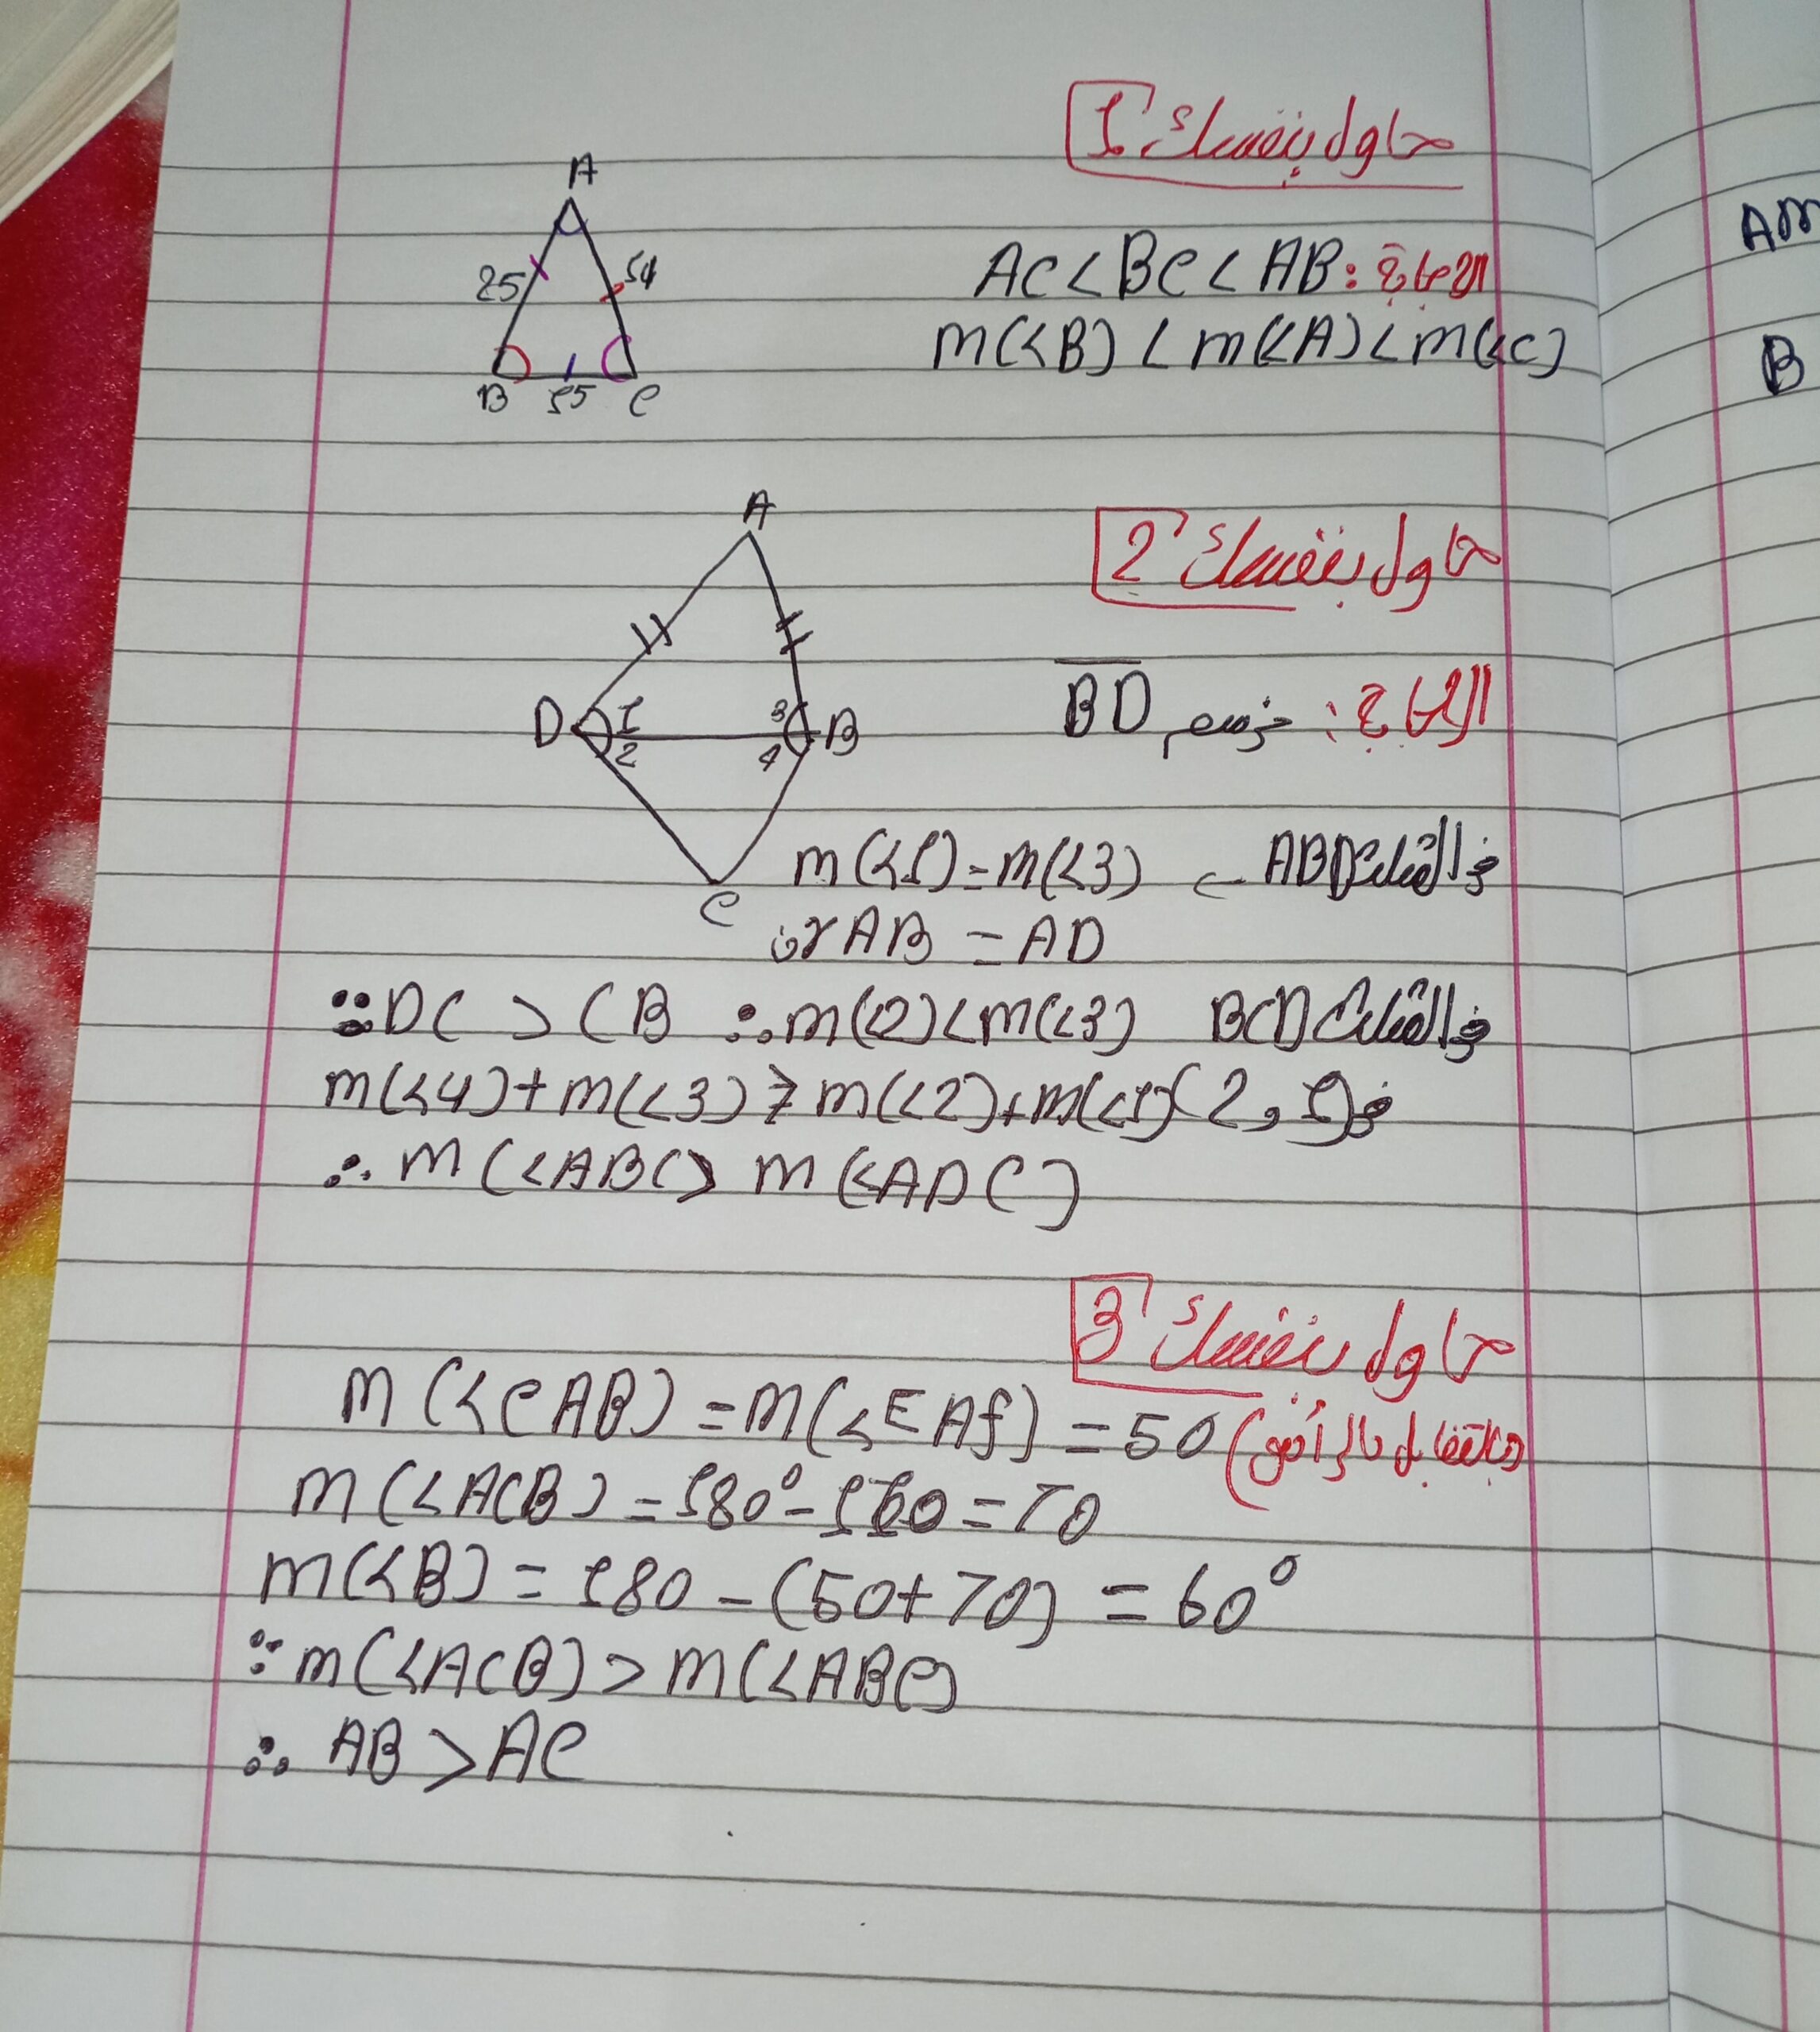 حاول بنفسك 1
A
25
14
B 15 C
الاجابة : AC < BC < AB
m(<B) < m(<A) < m(<C)
حاول بنفسك 2
A
D 1 3 B
2 4
C
نرسم BD
في المثلث ABD ← m(<1) = m(<3)
لان AB = AD
في المثلث BCD
∵ DC > CB ∴ m(<2) < m(<3)
من (1 و 2) m(<4) + m(<3) > m(<2) + m(<1)
∴ m(<ABC) > m(<ADC)
حاول بنفسك 3
m(<CAB) = m(<EAf) = 50 (بالتقابل بالرأس)
m(<ACB) = 180° - 110 = 70
m(<B) = 180 - (50+70) = 60°
∵ m(<ACB) > m(<ABC)
∴ AB > AC
AM
B